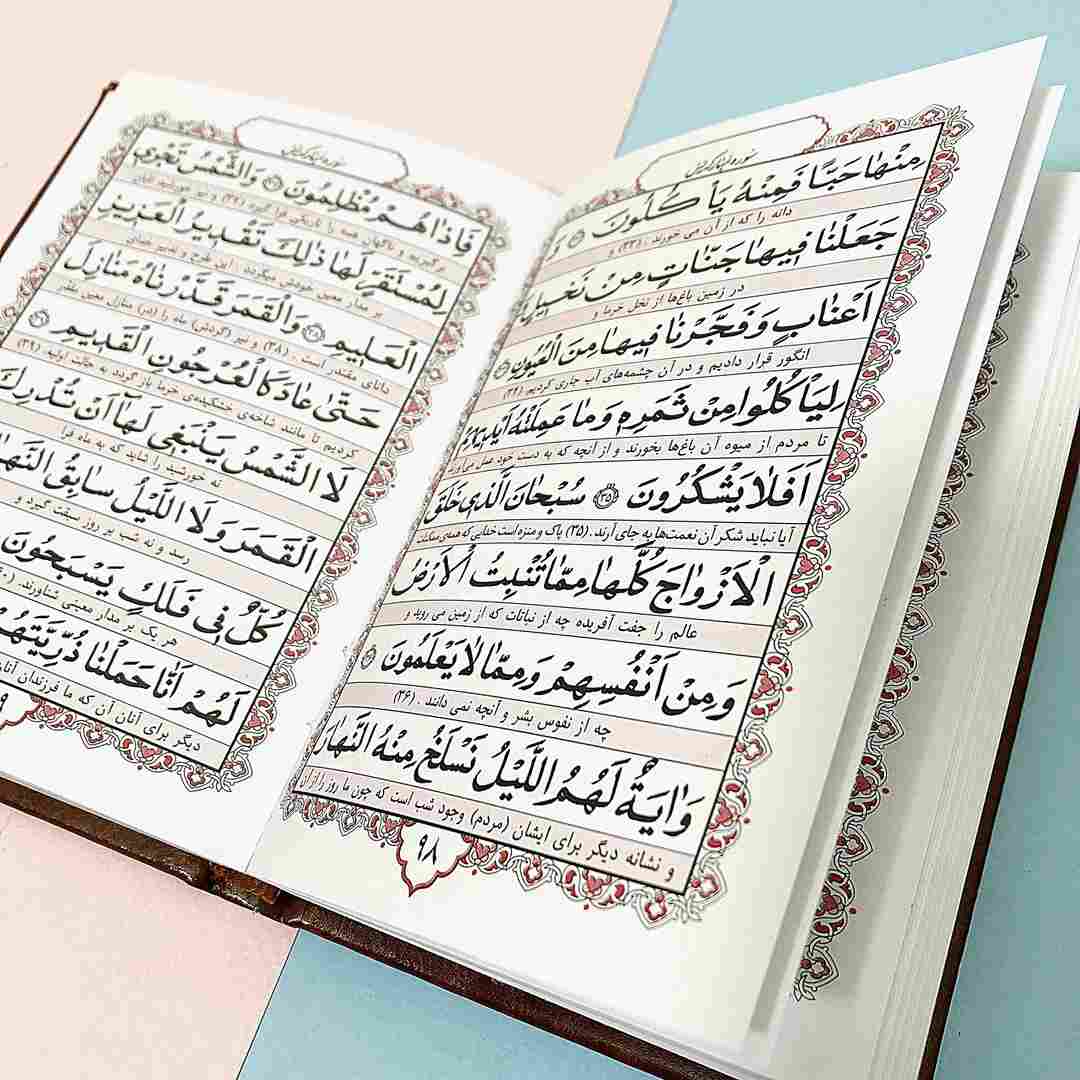 سوره مبارکه یس
مِنْهَا حَبًّا فَمِنْهُ يَأْكُلُونَ ﴿۳۳﴾ وَ
دانه را که از آن می خورند. (۳۳) و
جَعَلْنَا فِيهَا جَنَّاتٍ مِنْ نَخِيلٍ
در زمین باغ‌ها از نخل خرما و
اَعْنَابٍ وَفَجَّرْنَا فِيهَا مِنَ الْعُيُونِ ﴿۳۴﴾
انگور قرار دادیم و در آن چشمه‌های آب جاری کردیم. (۳۴)
لِيَأْكُلُوا مِنْ ثَمَرِهِ وَمَا عَمِلَتْهُ اَيْدِيهِمْ
تا مردم از میوه آن باغ‌ها بخورند و از آنچه که به دست خود عمل می‌آورند
اَفَلَا يَشْكُرُونَ ﴿۳۵﴾ سُبْحَانَ الَّذِي خَلَقَ
آیا نباید شکر آن نعمت‌ها به جای آرند. (۳۵) پاک و منزه است خدایی که همه‌ی ممکنات
الْاَزْوَاجَ كُلَّهَا مِمَّا تُنْبِتُ الْاَرْضُ
عالم را جفت آفریده چه از نباتات که از زمین می روید و
وَمِنْ اَنْفُسِهِمْ وَمِمَّا لَا يَعْلَمُونَ ﴿۳۶﴾
چه از نفوس بشر و آنچه نمی دانند. (۳۶)
وَاٰيَةٌ لَهُمُ اللَّيْلُ نَسْلَخُ مِنْهُ النَّهَارَ
و نشانه دیگر برای ایشان (مردم) وجود شب است که چون ما روز را از آن
۹۸
سوره مبارکه یس
فَاِذَا هُمْ مُظْلِمُونَ ﴿۳۷﴾ وَالشَّمْسُ تَجْرِي
برگیریم ناگهان همه را تاریکی فرا گیرد. (۳۷) و نیز خورشید تابان
لِمُسْتَقَرٍّ لَهَا ذٰلِكَ تَقْدِيرُ الْعَزِيزِ
بر مدار معین خودش میگردد. این طرح و تدبیر خدای
الْعَلِيمِ ﴿۳۸﴾ وَالْقَمَرَ قَدَّرْنَاهُ مَنَازِلَ
دانای مقتدر است. (۳۸) و نیز (گردش) ماه را (در) منازل معین مقدر
حَتّٰى عَادَ كَالْعُرْجُونِ الْقَدِيمِ ﴿۳۹﴾
کردیم تا مانند شاخه‌ی خشکیده‌ی خرما باز گردد به حالت اولیه. (۳۹)
لَا الشَّمْسُ يَنْبَغِي لَهَا اَنْ تُدْرِكَ
نه خورشید را شاید که به ماه فرا
الْقَمَرَ وَلَا اللَّيْلُ سَابِقُ النَّهَارِ
رسد و نه شب بر روز سبقت گیرد و
كُلٌّ فِي فَلَكٍ يَسْبَحُونَ
هر یک بر مدار معینی شناورند.
لَهُمْ اَنَّا حَمَلْنَا ذُرِّيَّتَهُمْ
دیگر برای آنان آن که ما فرزندان آنان